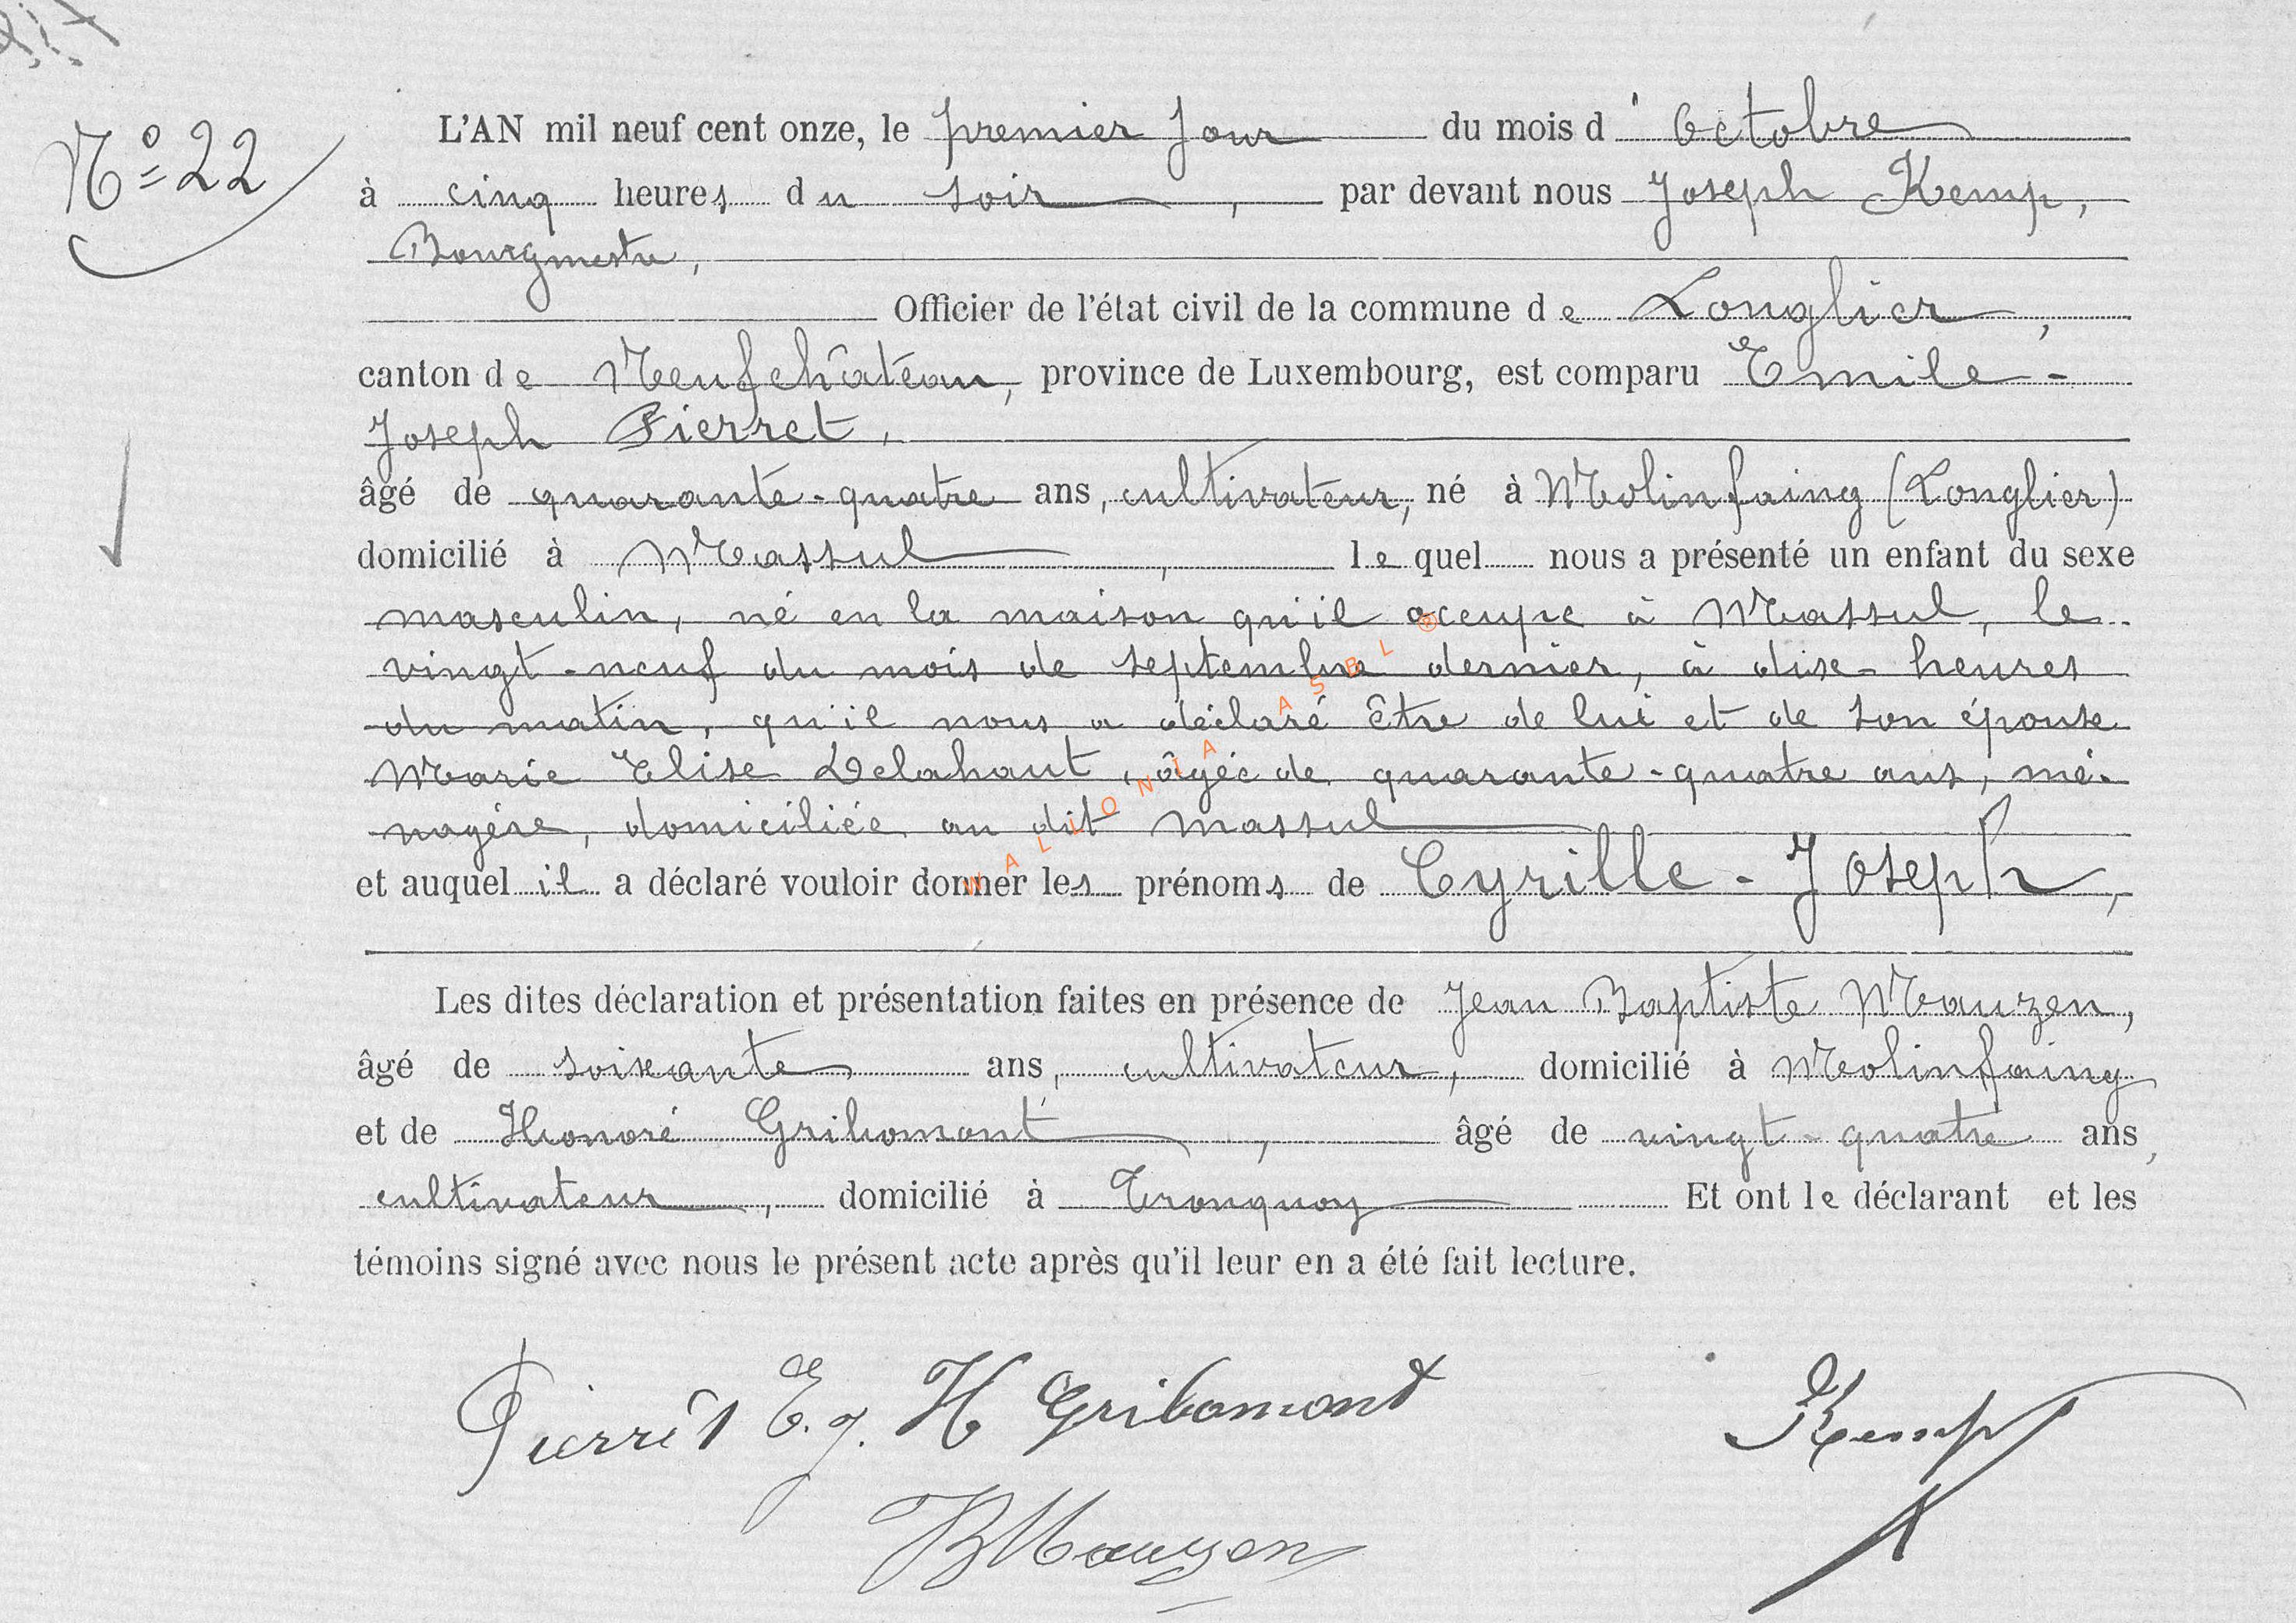 N° 22
L'AN mil neuf cent onze, le premier jour du mois d'Octobre
à cinq heures du soir, par devant nous Joseph Kemp,
Bourgmestre,
Officier de l'état civil de la commune de Longlier,
canton de Neufchâteau, province de Luxembourg, est comparu Emile-
Joseph Pierret,
âgé de quarante-quatre ans, cultivateur, né à Molinfaing (Longlier)
domicilié à Massul, lequel nous a présenté un enfant du sexe
masculin, né en la maison qu'il occupe à Massul, le
vingt-neuf du mois de septembre dernier, à dise-heures
du matin, qu'il nous a déclaré être de lui et de son épouse
Marie Elise Delahaut, âgée de quarante-quatre ans, mé-
nagère, domiciliée au dit Massul
et auquel il a déclaré vouloir donner les prénoms de Cyrille-Joseph,
Les dites déclaration et présentation faites en présence de Jean Baptiste Mauzen,
âgé de soixante ans, cultivateur, domicilié à Molinfaing
et de Honoré Gribomont, âgé de vingt-quatre ans,
cultivateur, domicilié à Tronquoy Et ont le déclarant et les
témoins signé avec nous le présent acte après qu'il leur en a été fait lecture.
Pierret E.J. H Gribomont Kemp
JBMauzen
WALLONIA ASBL ©